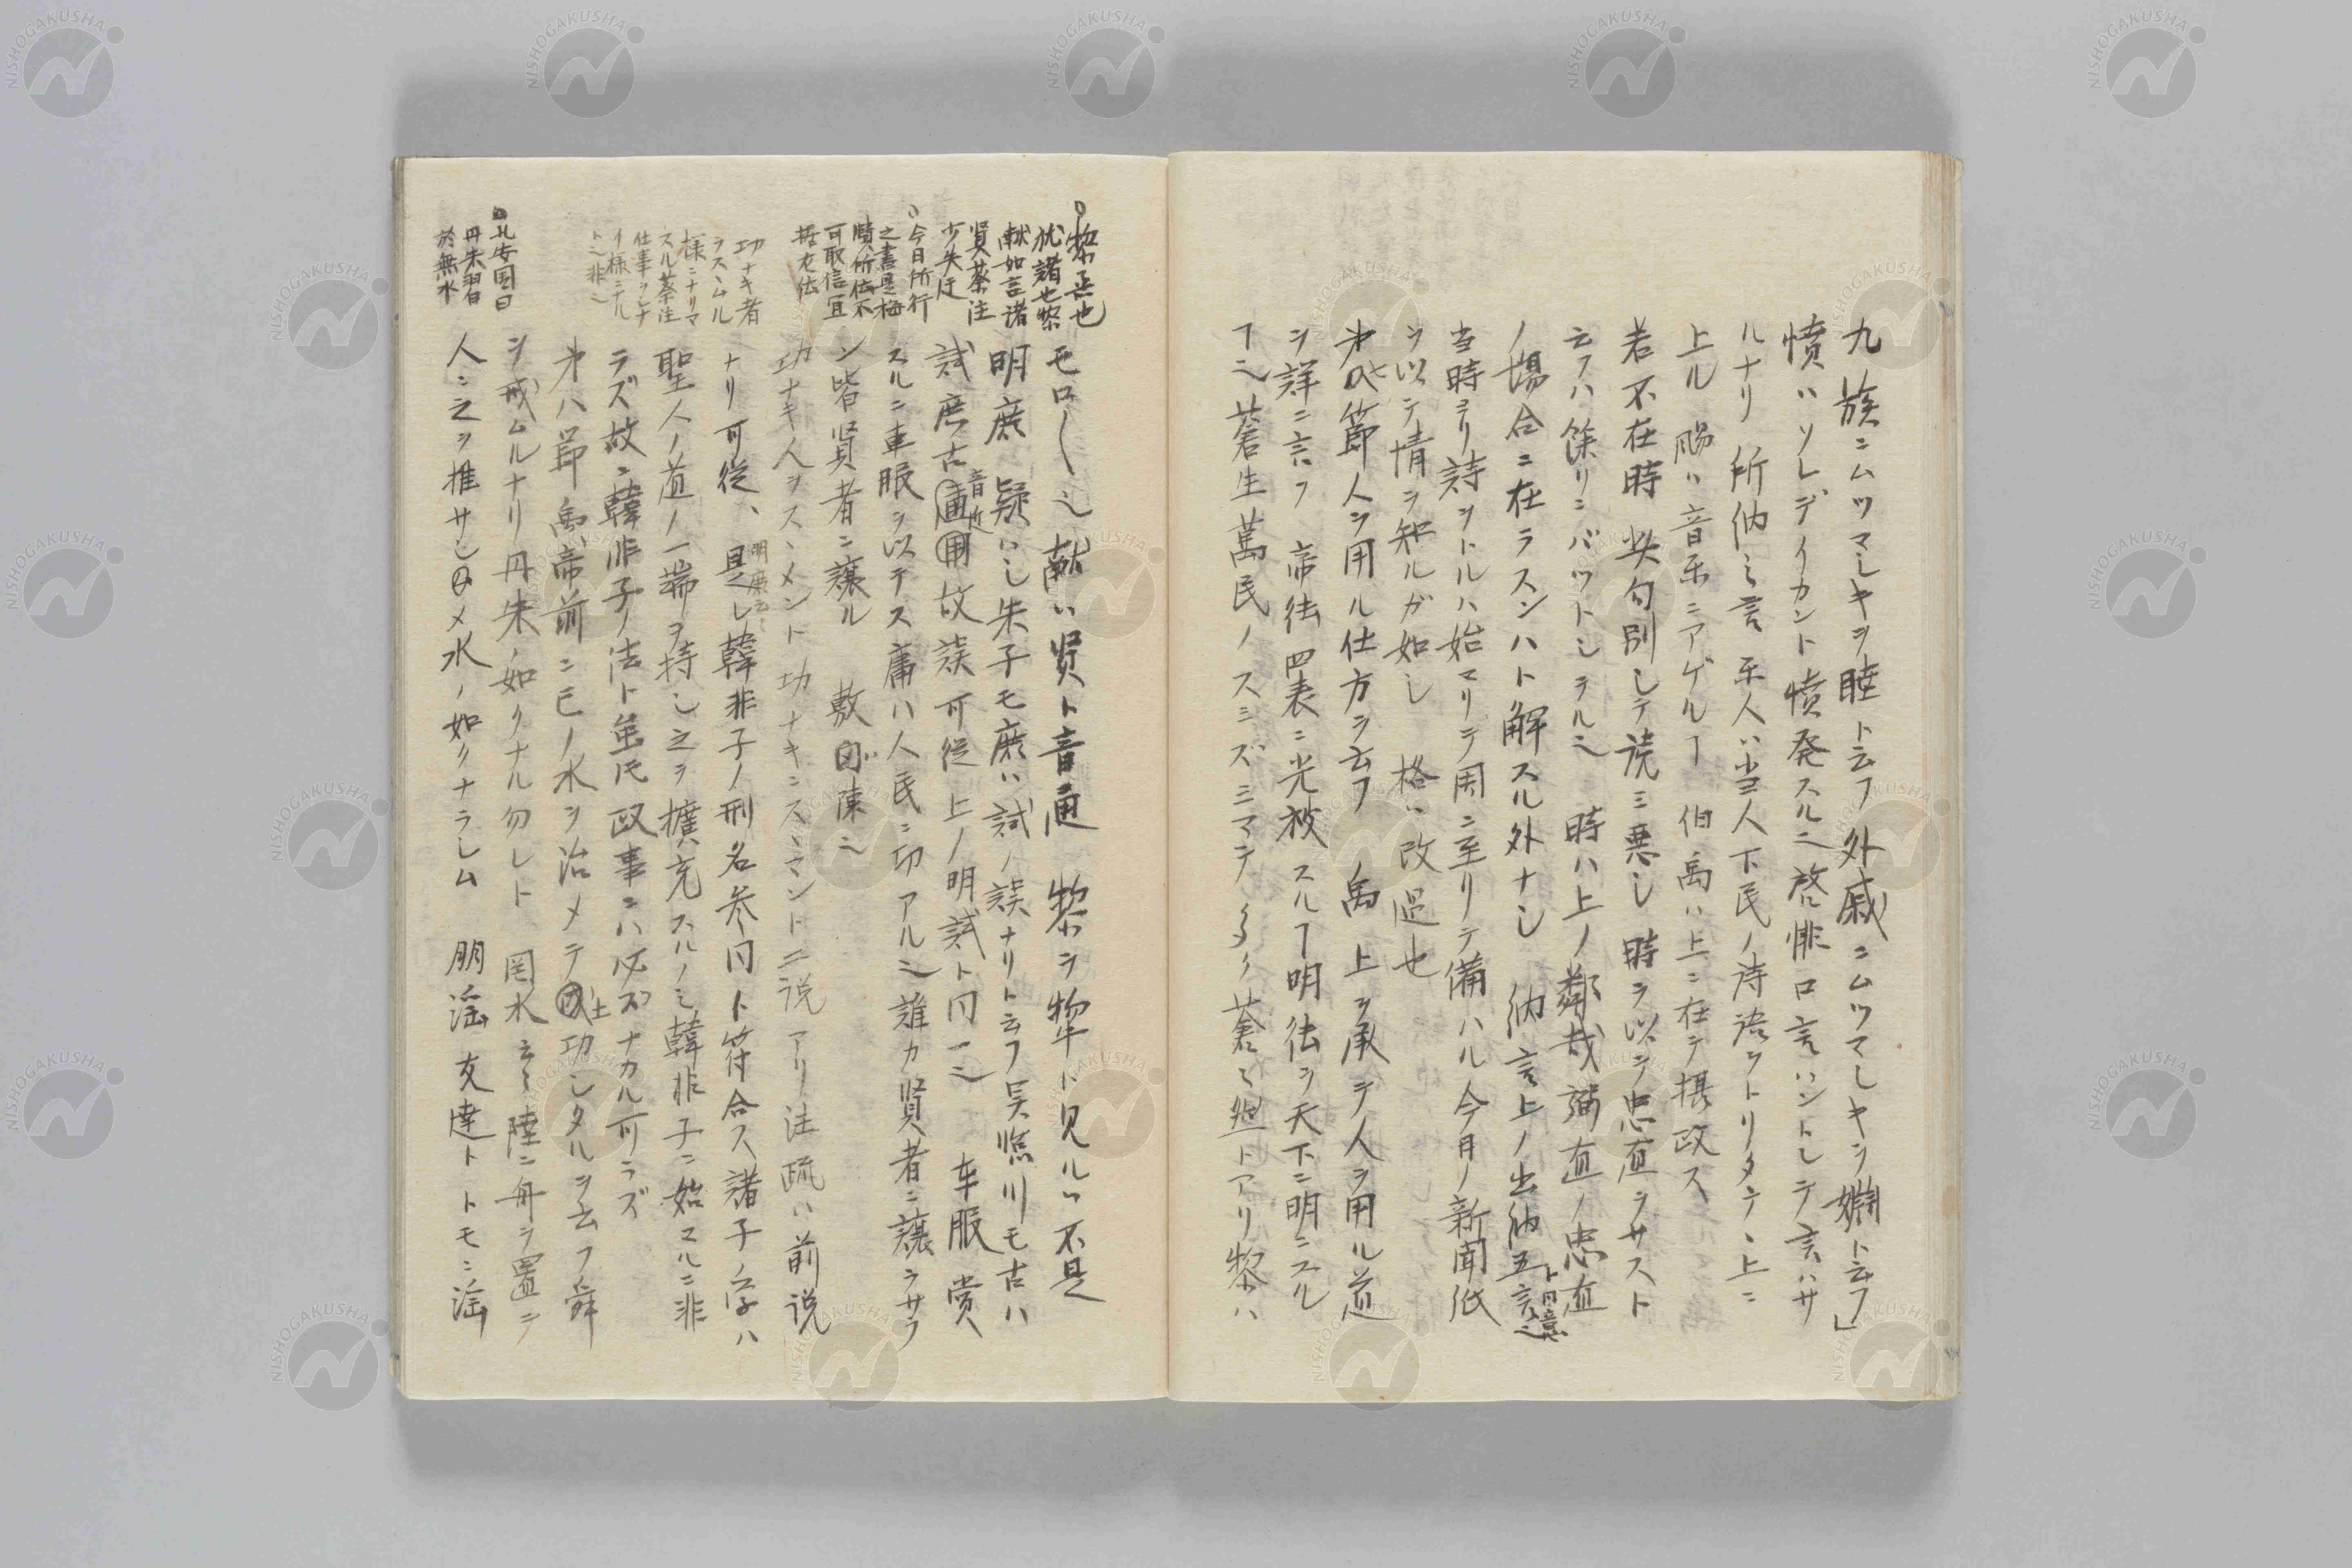 九族ニムツマシキヲ睦ト云フ 外戚ニムツマシキヲ嫺ト云フ」
憤ハソレデイカント憤発スル也 啓悱 口言ハントシテ言ハサ
ルナリ 所納之言 楽人ハ当人下民ノ詩語ヲトリタテヽ上ニ
上ル 颺ハ音楽ニアゲルヿ 伯禹ハ上ニ在テ摂政ス
若不在時 此句別シテ読ミ悪シ 時ヲ以テ忠直ラサスト
云フハ餘リニバツトシラル也 時ハ上ノ鄰哉弼直ノ忠直
ノ場合ニ在ラスンハト解スル外ナシ 納言上ノ出納五言ト同意也
当時ヨリ詩ヲトルハ始マリテ周ニ至リテ備ハル今日ノ新聞紙
ヲ以テ情ヲ知ルガ如シ 格ハ改過也
第七節人ヲ用ル仕方ヲ云フ 禹 上ヲ承テ人ヲ用ル道
ヲ詳ニ言フ 帝徳四表ニ光被スルヿ明徳ヲ天下ニ明ニスル
ヿ也 蒼生萬民ノスミズミマテ 蒼之 トアリ黎ハ
モロ〱也 献ハ賢ト音通 黎ヲ犂ト見ルハ不是
明庶 疑ハシ朱子モ庶ハ試ノ誤ナリト云フ呉 川モ古ハ
試庶古音近通用故誤可従 上ノ明試ト同一也 車服 賞
スルニ車服ヲ以テス庸ハ人民ニ功アル也 誰カ賢者ニ譲ラサラ
ン皆賢者ニ譲ル 敷同ハ陳也
功ナキ人ヲスヽメント功ナキニスヽマントニ説アリ注疏ハ前説
ナリ可従、明庶云〻是レ韓非子ノ刑名参同ト符合ス諸子ノ学ハ
聖人ノ道ノ一端ヲ持シ之ヲ擴充スルノミ韓非子ニ始マルニ非
ラズ故ニ韓非子ノ法ト虽𪜈政事ニハ必ズナカル可ラズ
第八節 禹帝前ニ已ノ水ヲ治メテ土功シタルヲ云フ舜
ヲ戒ムルナリ丹朱ノ如クナル勿レト 罔水云〻陸ニ舟ヲ置テ
人ニ之ヲ推サシメ水ノ如クナラシム 朋淫 友達トトモニ淫
○黎烝也
献如言諸
賢蔡注
少失迂
○今日所行
之書是梅
賾所依不
可取信宜
功ナキ者
ヲスヽムル
様ニナリマ
スル蔡注
仕事ヲシナ
イ様ニナル
ト也非也
○孔安国曰
丹朱習
於無水